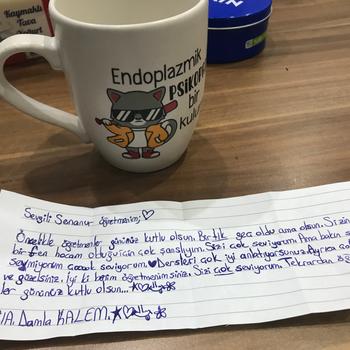 Kaymaklı
Tava
Yoğurt
Endoplazmik
PSİKOPAT
bir
kulum
Sevgili Senanur öğretmenimi♡
Öncelikle öğretmenler gününüz kutlu olsun. Bir tık geç oldu ama olsun. Sizin
bir fen hocam olduğu için çok şanslıyım. Sizi çok seviyorum. Ama bakın s
sevmiyorum çooook seviyorum. Dersleri çok iyi anlatıyorsunuz. Ayrıca ço
ve güzelsiniz. İyi ki bizim öğretmenimsiniz. Sizi çok seviyorum. Tekrardan öğ
ler gününüz kutlu olsun...
Damla KALEM.